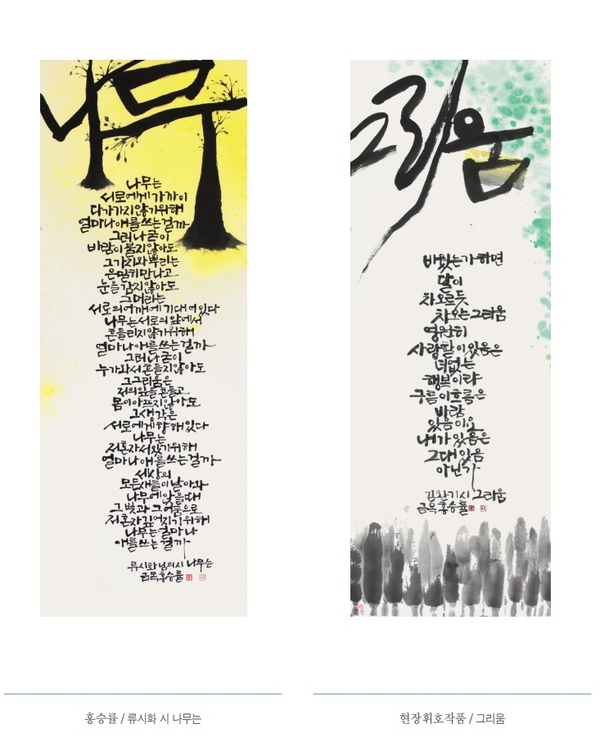 나무
나무는
서로에게 가까이
다가가지 않기 위해
얼마나 애를 쓰는 걸까
그러나 굳이
바람이 불지 않아도
그 가지와 뿌리는
은밀히 만나고
눈을 감지 않아도
그 머리는
서로의 어깨에 기대어 있다
나무는 서로의 앞에서
흔들리지 않기 위해
얼마나 애를 쓰는 걸까
그러나 굳이
누가 와서 흔들지 않아도
그 그리움은
저의 잎을 흔들고
몸이 아프지 않아도
그 생각은
서로에게 향해 있다
나무는
저 혼자 서 있기 위해
얼마나 애를 쓰는 걸까
세상의
모든 새들이 날아와
나무에 앉을 때
그 빛과 그 어둠으로
저 혼자 깊어지기 위해
나무는 얼마나
애를 쓰는 걸까
류시화 님의 시 나무는
금목 홍승률
홍승률 / 류시화 시 나무는
그리움
비웠는가 하면
달이
차오르듯
차오는 그리움
영원히
사랑함이 있음은
더없는
행복이랴
구름이 흐름은
바람
있음이요
내가 있음은
그대 있음
아닌가
시 그리움
금목 홍승률
현장휘호작품 / 그리움